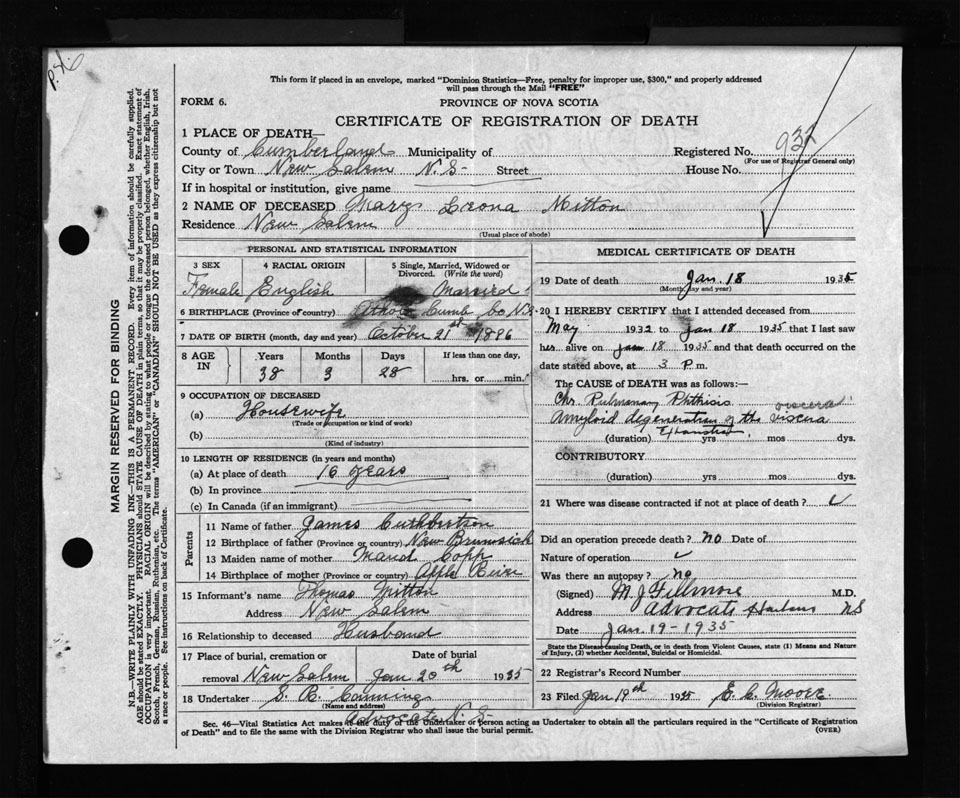 This form if placed in an envelope, marked "Dominion Statistics—Free, penalty for improper use, $300," and properly addressed
will pass through the Mail "FREE"
FORM 6.
PROVINCE OF NOVA SCOTIA
CERTIFICATE OF REGISTRATION OF DEATH
1 PLACE OF DEATH—
County of Cumberland Municipality of Registered No. 932
(For use of Registrar General only)
City or Town New Salem N.S- Street House No.
If in hospital or institution, give name
2 NAME OF DECEASED Mary Leona Mitton
Residence New Salem
(Usual place of abode)
PERSONAL AND STATISTICAL INFORMATION
3 SEX 4 RACIAL ORIGIN 5 Single, Married, Widowed or Divorced. (Write the word)
Female English Married
6 BIRTHPLACE (Province or country) Athol Cumb Co N.S.
7 DATE OF BIRTH (month, day and year) October 21st 1886
8 AGE IN Years Months Days If less than one day,
38 3 28 hrs. or min.
9 OCCUPATION OF DECEASED
(a) Housewife
(Trade or occupation or kind of work)
(b)
(Kind of industry)
10 LENGTH OF RESIDENCE (in years and months)
(a) At place of death 16 years
(b) In province
(c) In Canada (if an immigrant)
Parents
11 Name of father James Cuthbertson
12 Birthplace of father (Province or country) New Brunswick
13 Maiden name of mother Maud Copp
14 Birthplace of mother (Province or country) Apple River
15 Informant's name Thomas Mitton
Address New Salem
16 Relationship to deceased Husband
17 Place of burial, cremation or Date of burial
removal New Salem Jan 20th 1935
18 Undertaker S. B. Canning
(Name and address)
Advocate N.S-
MEDICAL CERTIFICATE OF DEATH
19 Date of death Jan. 18 1935
(Month, day and year)
20 I HEREBY CERTIFY that I attended deceased from
May 1932 to Jan 18 1935 that I last saw
her alive on Jan 18 1935 and that death occurred on the
date stated above, at 3 P. m.
The CAUSE OF DEATH was as follows:—
Chr. Pulmonary Phthisis visceral
Amyloid degeneration of the viscera
Exhaustion
(duration) yrs. mos dys.
CONTRIBUTORY
(duration) yrs mos dys.
21 Where was disease contracted if not at place of death?
Did an operation precede death? no Date of
Nature of operation
Was there an autopsy? no
(Signed) M. J. Fillmore M.D.
Address Advocate Harbour NS
Date Jan. 19-1935
State the Disease causing Death, or in death from Violent Causes, state (1) Means and Nature
of Injury, (2) whether Accidental, Suicidal or Homicidal.
22 Registrar's Record Number
23 Filed Jan 19th 1935 E. C. Moore
(Division Registrar)
Sec. 46—Vital Statistics Act makes it the duty of the Undertaker or person acting as Undertaker to obtain all the particulars required in the "Certificate of Registration
of Death" and to file the same with the Division Registrar who shall issue the burial permit.
(OVER)
MARGIN RESERVED FOR BINDING
N.B.—WRITE PLAINLY WITH UNFADING INK—THIS IS A PERMANENT RECORD. Every item of information should be carefully supplied.
AGE should be stated EXACTLY. PHYSICIANS should STATE CAUSE OF DEATH in plain terms, so that it may be properly classified. Exact statement of
OCCUPATION is very important. RACIAL ORIGIN will be described by stating to what people or tongue the deceased person belonged, whether English, Irish,
Scotch, French, German, Russian, Ruthenian, etc. The terms "AMERICAN" or "CANADIAN" SHOULD NOT BE USED as they express citizenship but not
a race or people. See instructions on back of Certificate.